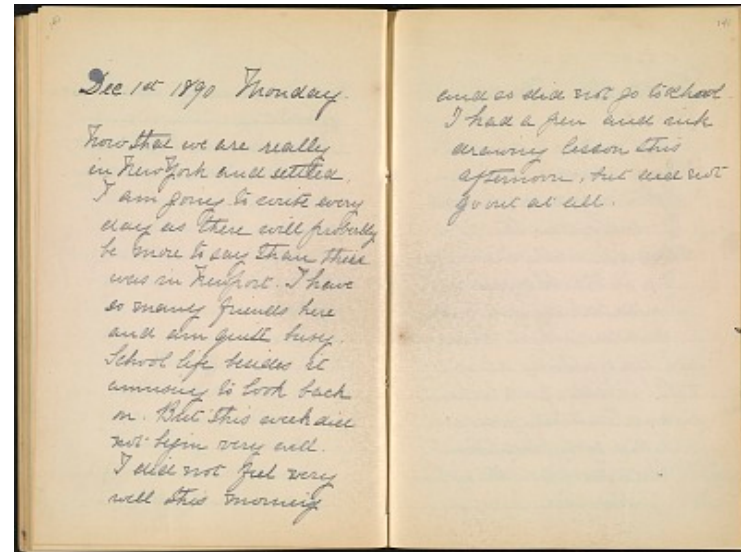 Dec 1st 1890 Monday.
Now that we are really
in New York and settled.
I am going to write every
day as there will probably
be more to say than there
was in Newport. I have
so many friends here
and am quite busy.
School life besides is
amusing to look back
on. But this week did
not begin very well.
I did not feel very
well this morning
and so did not go to school.
I had a pen and ink
drawing lesson this
afternoon, but did not
go out at all.